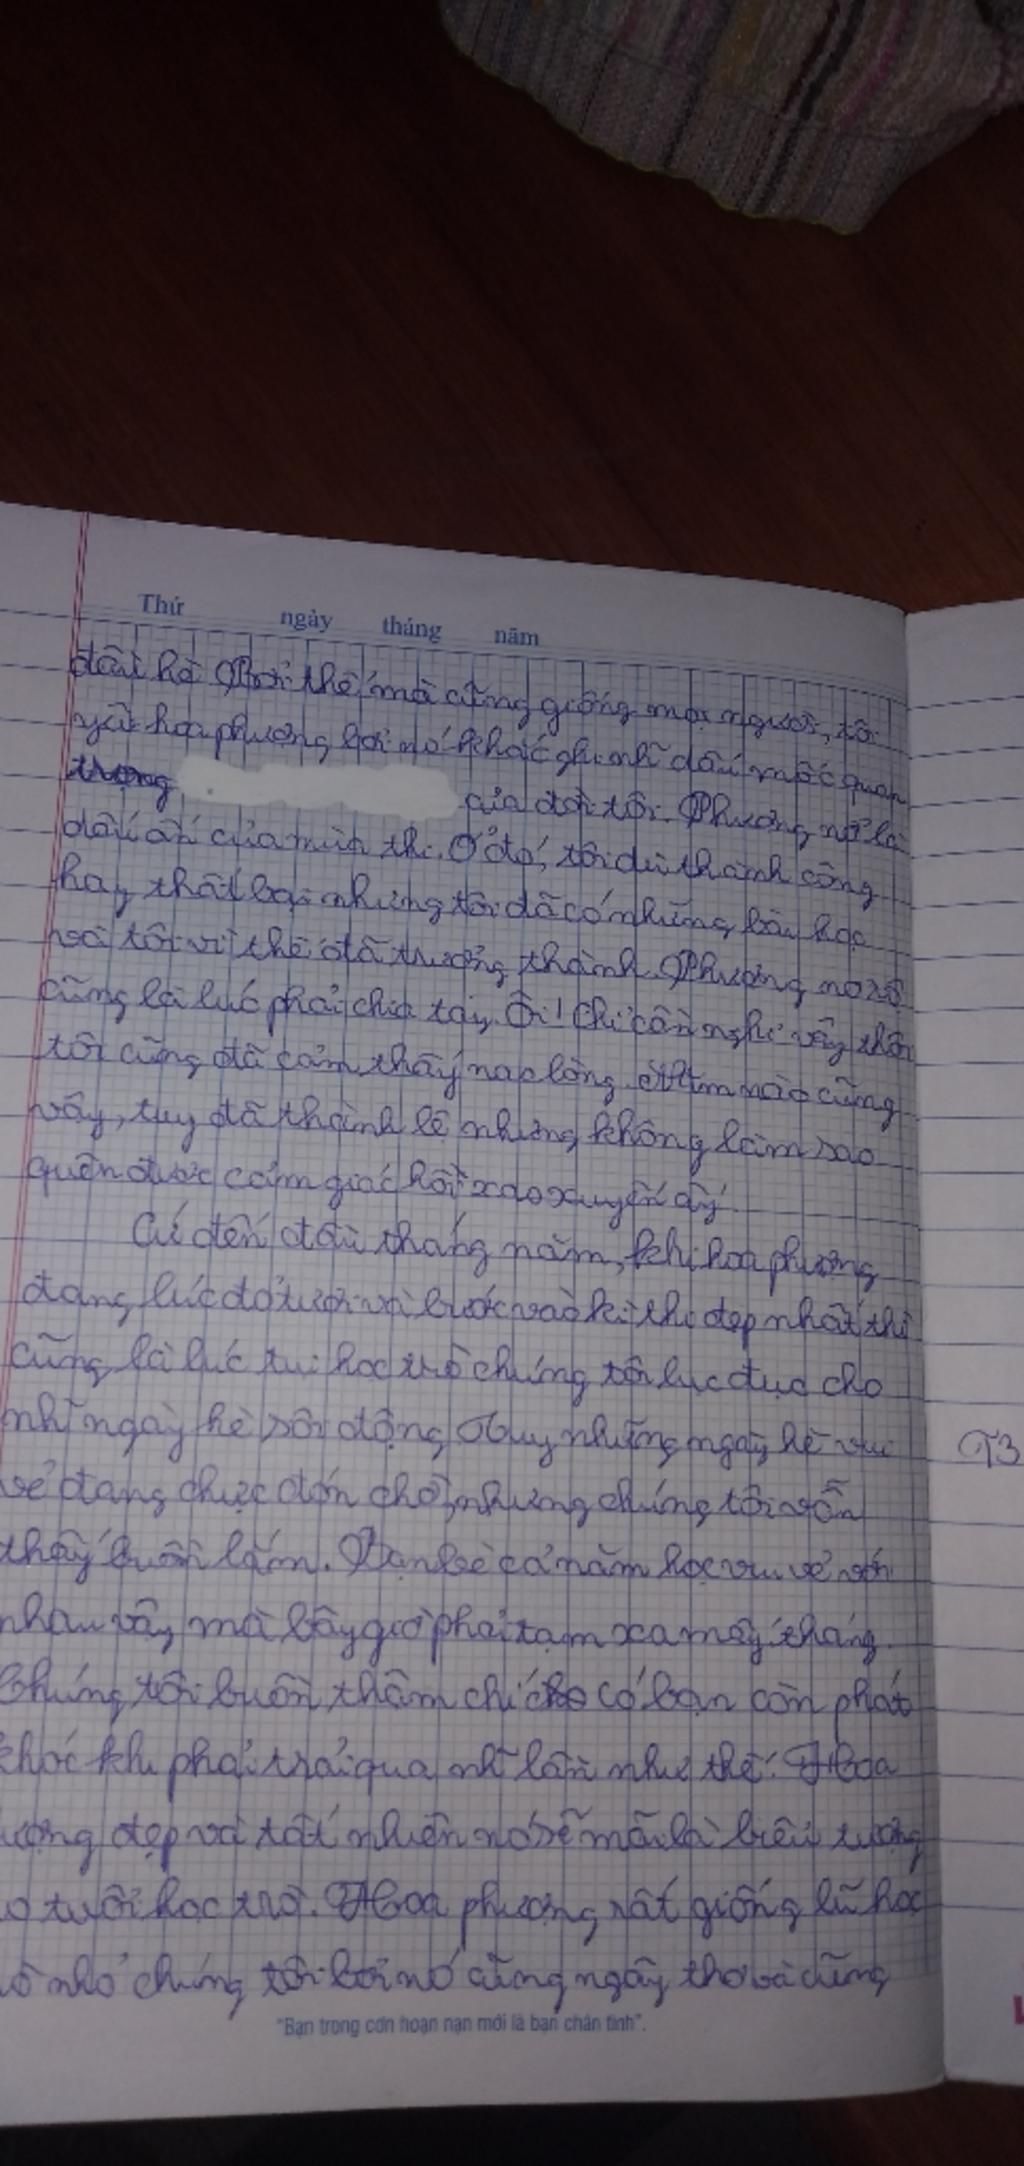 Thứ ngày tháng năm
đầu hè. Bởi thế mà cũng giống mọi người, tôi
yêu hoa phượng bởi nó khắc ghi nh~ dấu mốc quan
trọng của đời tôi. Phượng nở là
dấu ấn của mùa thi. Ở đó, tôi dù thành công
hay thất bại nhưng tôi đã có những bài học
và tôi vì thế đã trưởng thành. Phượng nở rồ
cũng là lúc phải chia tay. Ôi! Chỉ cần nghĩ vậy thôi
tôi cũng đã cảm thấy nao lòng. Năm nào cũng
vậy, tuy đã thành lệ nhưng không làm sao
quên được cảm giác hồi xao xuyến ấy.
Cứ đến đầu tháng năm, khi hoa phượng
đang lúc đỏ tươi và bước vào kì thi đẹp nhất thì
cũng là lúc tụi học trò chúng tôi lục đục cho
nh~ ngày hè sôi động. Tuy những ngày hè vui
vẻ đang chực đón chờ, nhưng chúng tôi vẫn
thấy buồn lắm. Bạn bè cả năm học vui vẻ với
nhau vậy mà bây giờ phải tạm xa mấy tháng.
Chúng tôi buồn, thậm chí có bạn còn phát
khóc khi phải trải qua nh~ lần như thế. Hoa
ượng đẹp và tất nhiên nó sẽ mãi là biểu tượng
o tuổi học trò. Hoa phượng rất giống lũ học
ò nhỏ chúng tôi bởi nó cũng ngây thơ và cũng
"Bạn trong cơn hoạn nạn mới là bạn chân tình".
T3